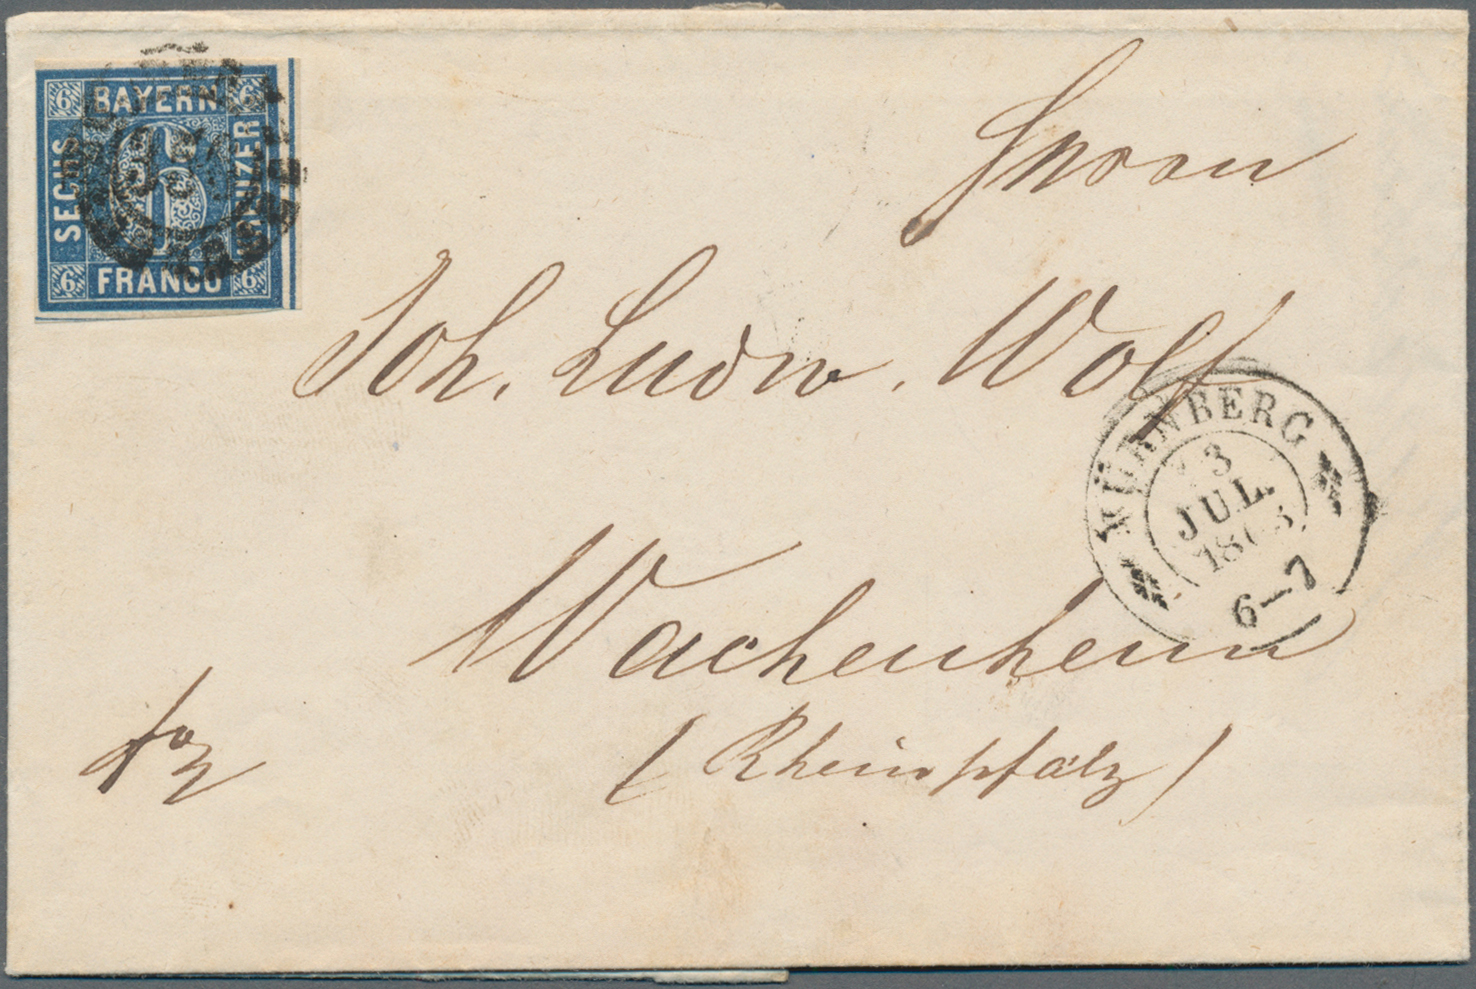 6 BAYERN 6
SECHS
KREUZER
6
6 FRANCO 6
Herrn
Joh. Ludw. Wolf
Wachenheim
(Rheinpfalz)
frz
NÜRNBERG
3
JUL.
6-7